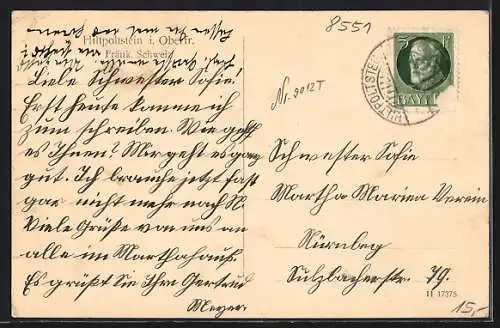 Hiltpoltstein i. Oberfr.
Fränk. Schweiz
Liebe Schwester Sofie!
Erst heute komme ich
zum schreiben. Wie geht
es Ihnen? Mir geht es ganz
gut. Ich brauche jetzt fast
gar nicht mehr nach N
Viele Grüße von uns an
alle im Marthahaus.
Es grüßt Sie Ihre Gertrud
Meyer.
8551
Nr. 9012T
BAYERN
HILTPOLTSTEIN
Schwester Sofie
Martha Marien Verein
Nürnbg
Sulzbacherstr. 79.
11 17375
15,-